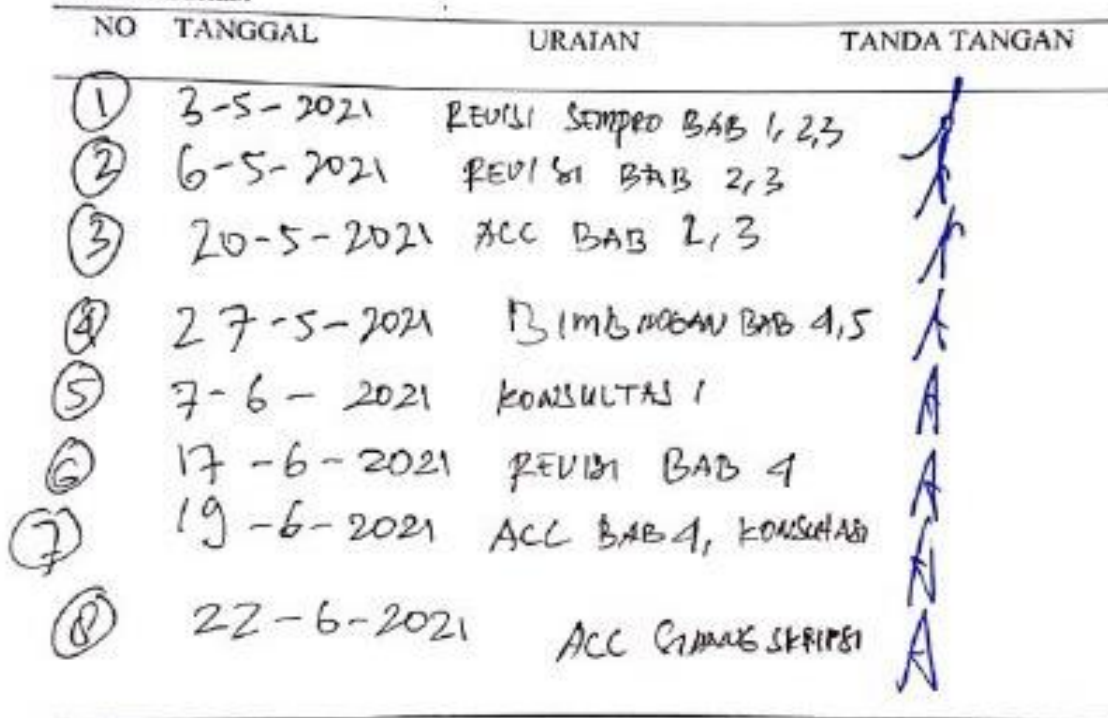 NO TANGGAL URAIAN TANDA TANGAN
1 3-5-2021 REVISI SEMPRO BAB 1, 2,3
2 6-5-2021 REVISI BAB 2,3
3 20-5-2021 ACC BAB 2,3
4 27-5-2021 BIMBINGAN BAB 4,5
5 7-6-2021 KONSULTASI
6 17-6-2021 REVISI BAB 4
7 19-6-2021 ACC BAB 4, KONSULTASI
8 22-6-2021 ACC SIDANG SKRIPSI